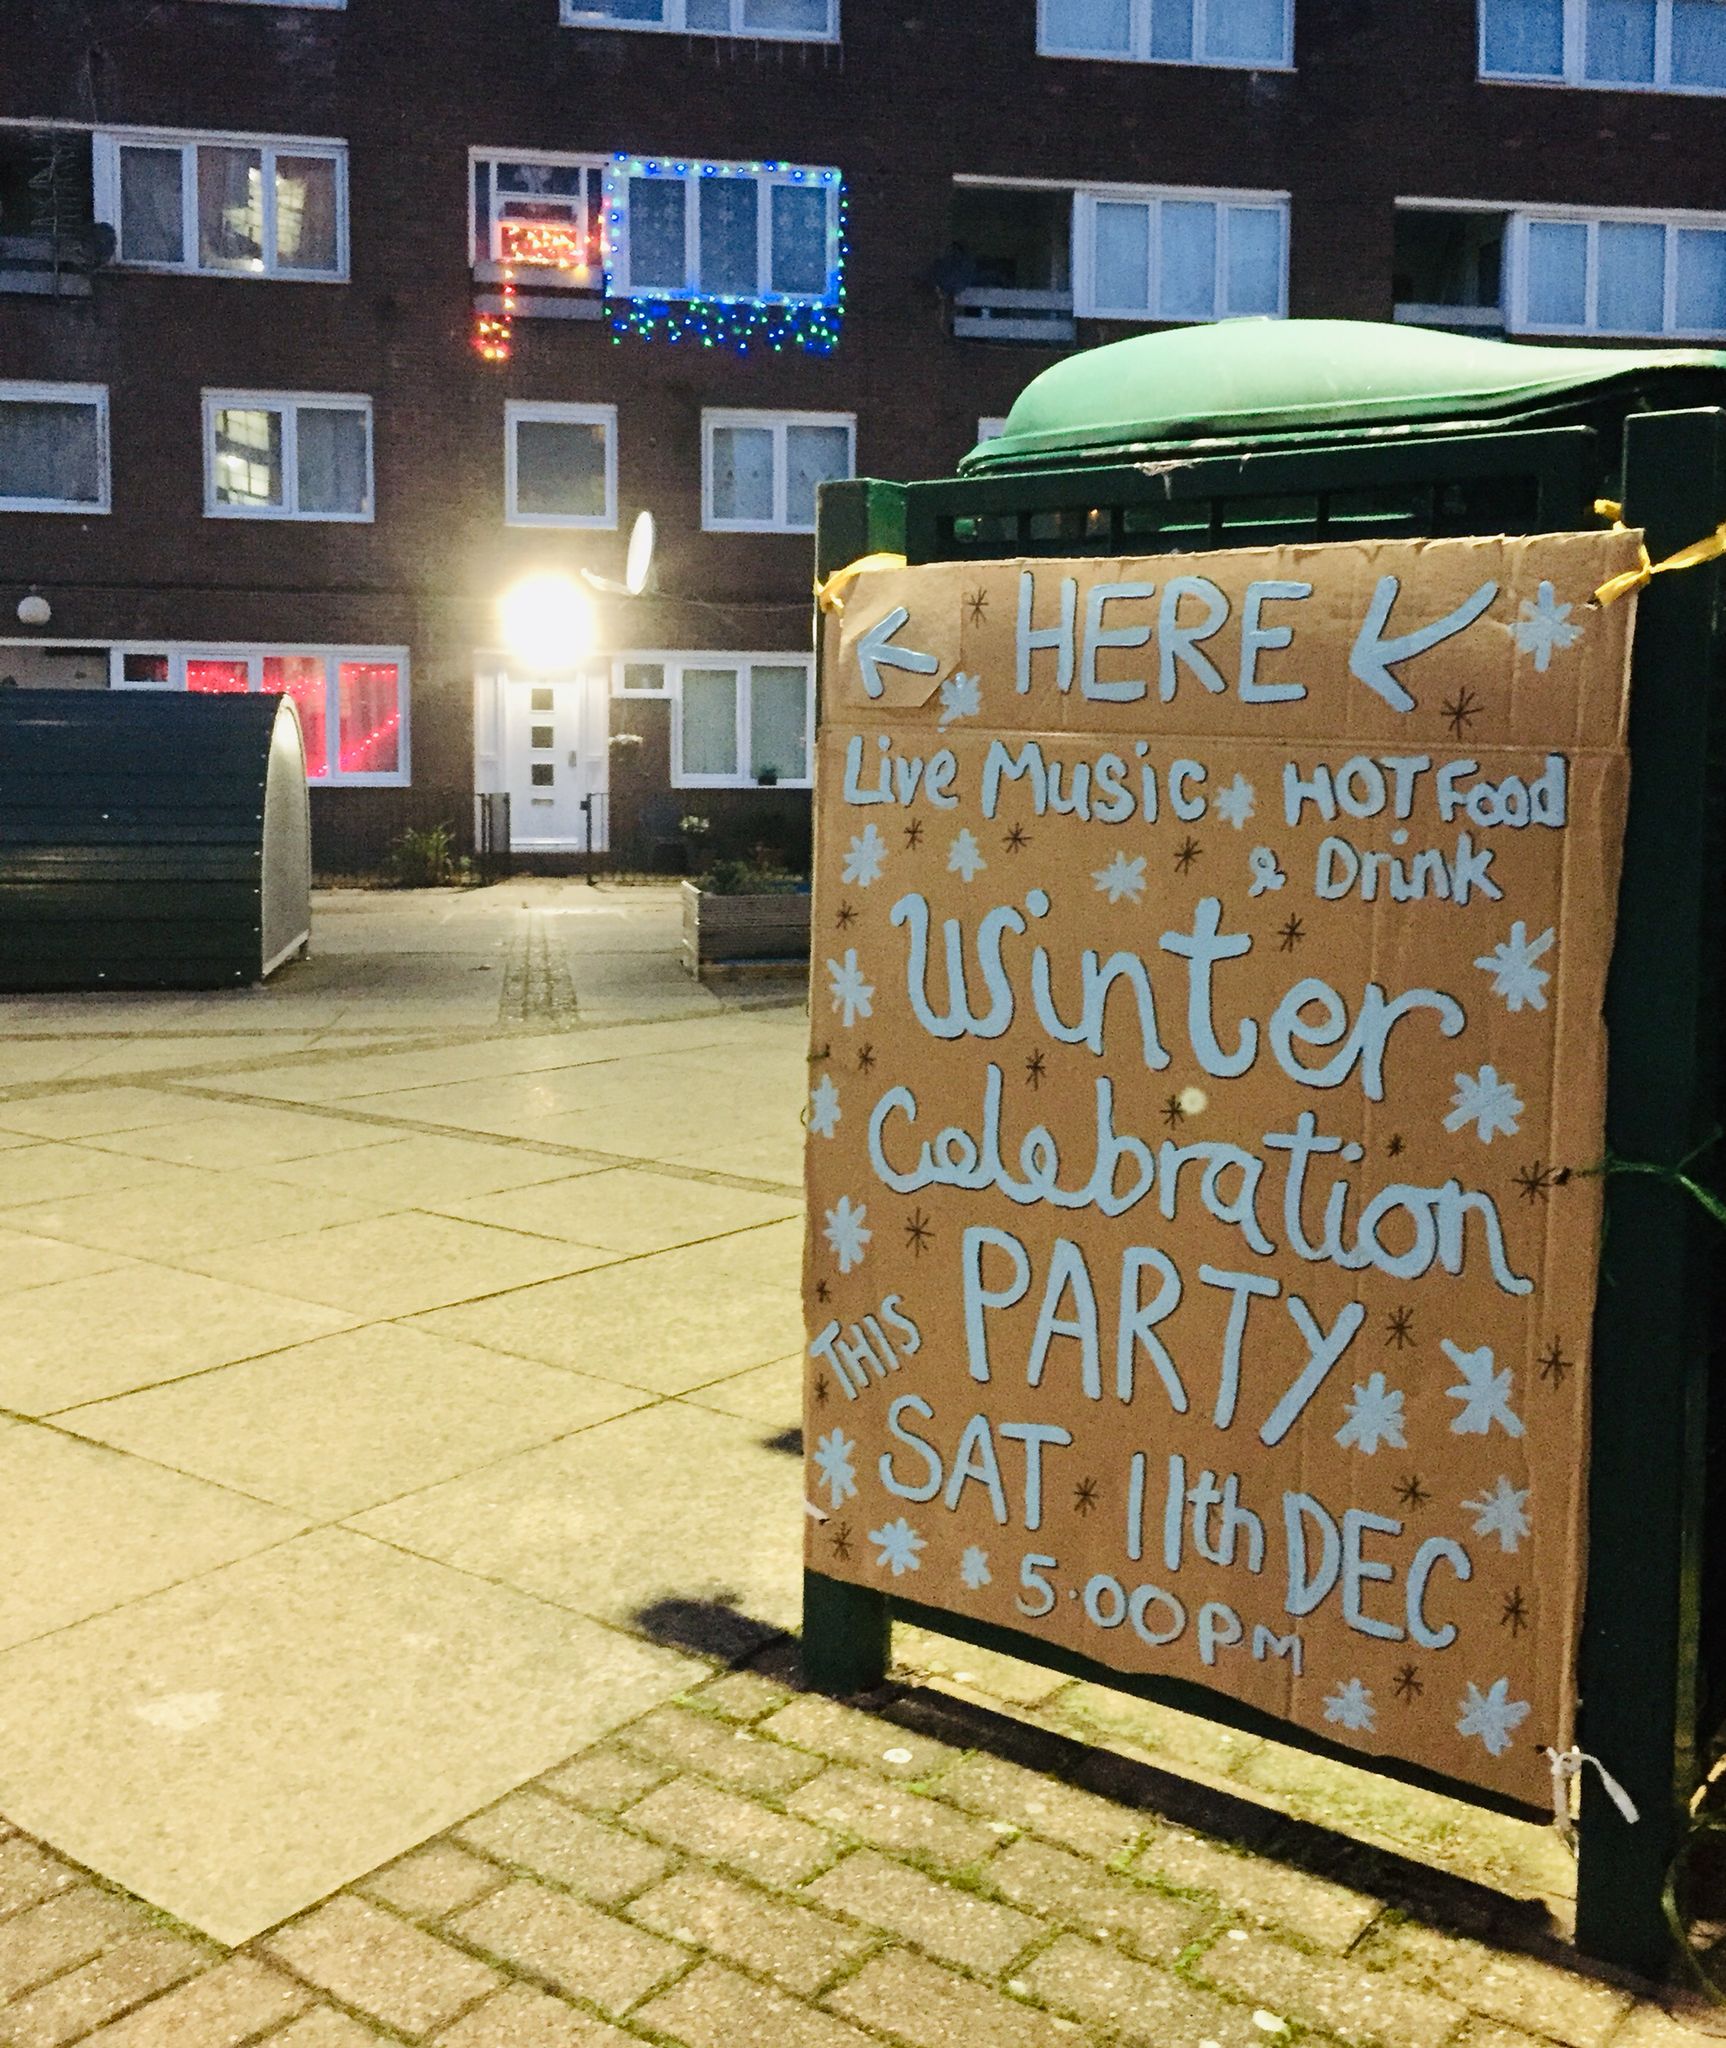 HERE
Live Music HOT Food
& Drink
Winter
Celebration
PARTY
THIS
SAT 11th DEC
5.00PM